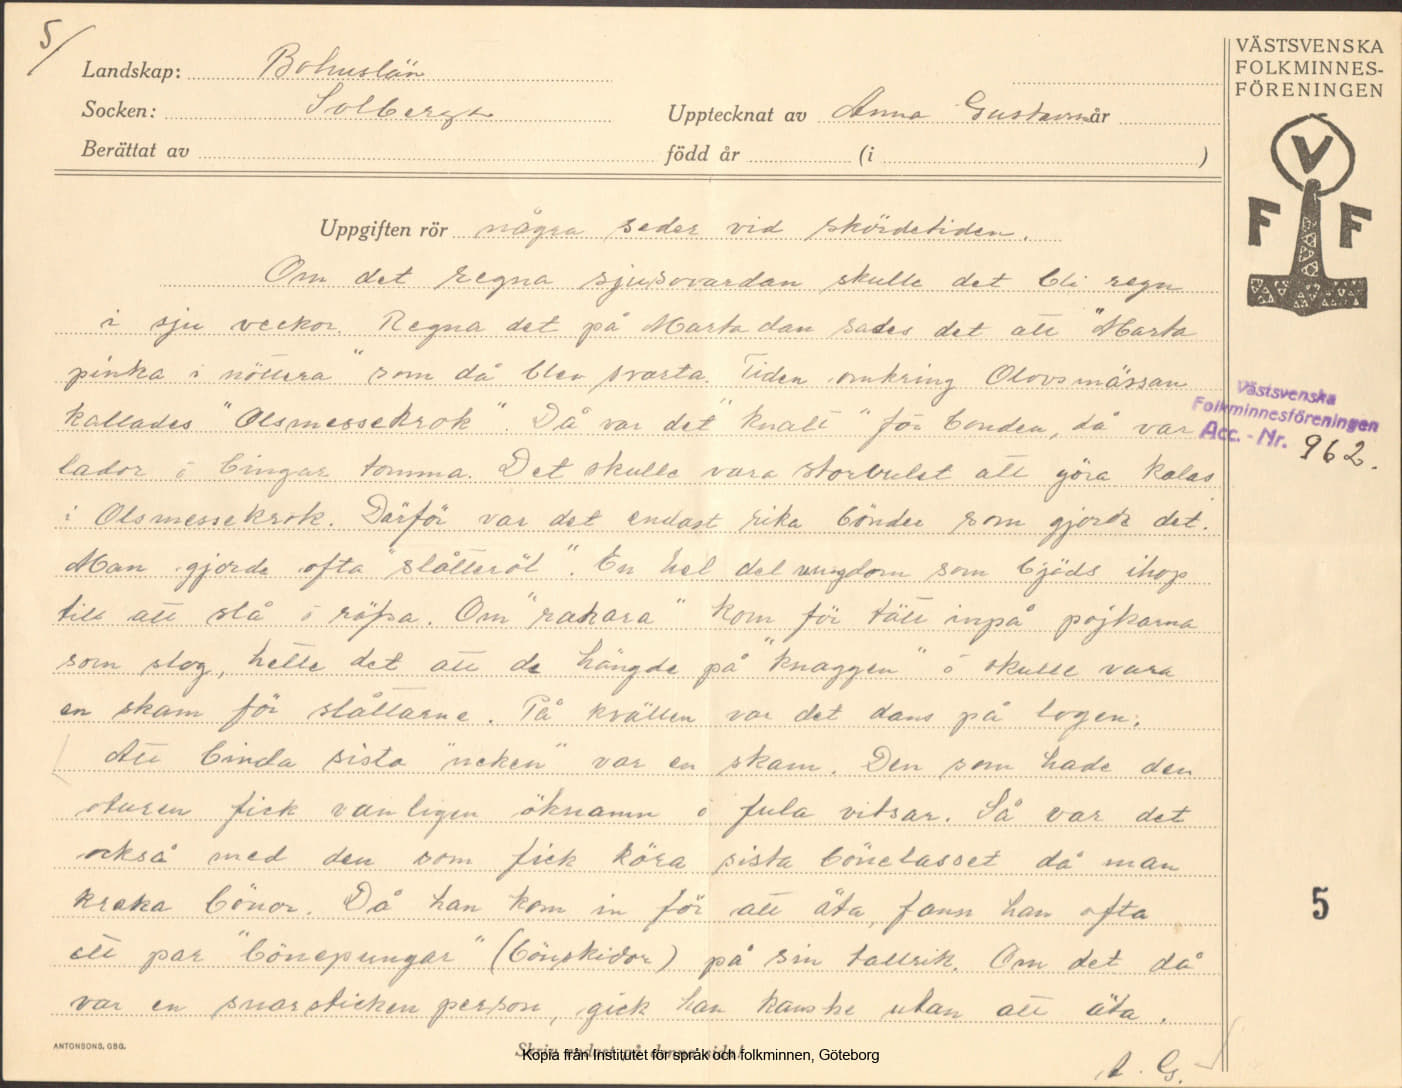 5/
Landskap: Bohuslän
Socken: Solberga Upptecknat av Anna Gustavsson år
Berättat av född år (i )
Uppgiften rör några seder vid skördetiden.
Om det regna sjusovardan skulle det bli regn
i sju veckor. Regna det på Marta dan sades det att "Marta
pinka i nöttera" som då blev svarta. Tiden omkring Olovsmässan
kallades "Olsmessekrok". Då var det "knalt" för bonden, då var
lador o bingar tomma. Det skulle vara storvulet att göra kalas
i Olsmessekrok. Därför var det endast rika bönder som gjorde det.
Man gjorde ofta "slåtteröl". En hel del ungdom som bjöds ihop
till att slå o räfsa. Om "rakara" kom för tätt inpå pojkarna
som slog, hette det att de hängde på "knaggen" o skulle vara
en skam för slåttarne. På kvällen var det dans på logen.
Att binda sista "neken" var en skam. Den som hade den
oturen fick vanligen öknamn o fula vitsar. Så var det
också med den som fick köra sista bönelasset då man
kraka bönor. Då han kom in för att äta, fann han ofta
ett par "bönepungar" (bönskidor) på sin tallrik. Om det då
var en snarsticken person, gick han kanske utan att äta.
A. G.
VÄSTSVENSKA
FOLKMINNES-
FÖRENINGEN
V
F F
Västsvenska
Folkminnesföreningen
Acc. - Nr. 962.
5
ANTONSONS, GBG.
Skriv endast på denna sida!
Kopia från Institutet för språk och folkminnen, Göteborg